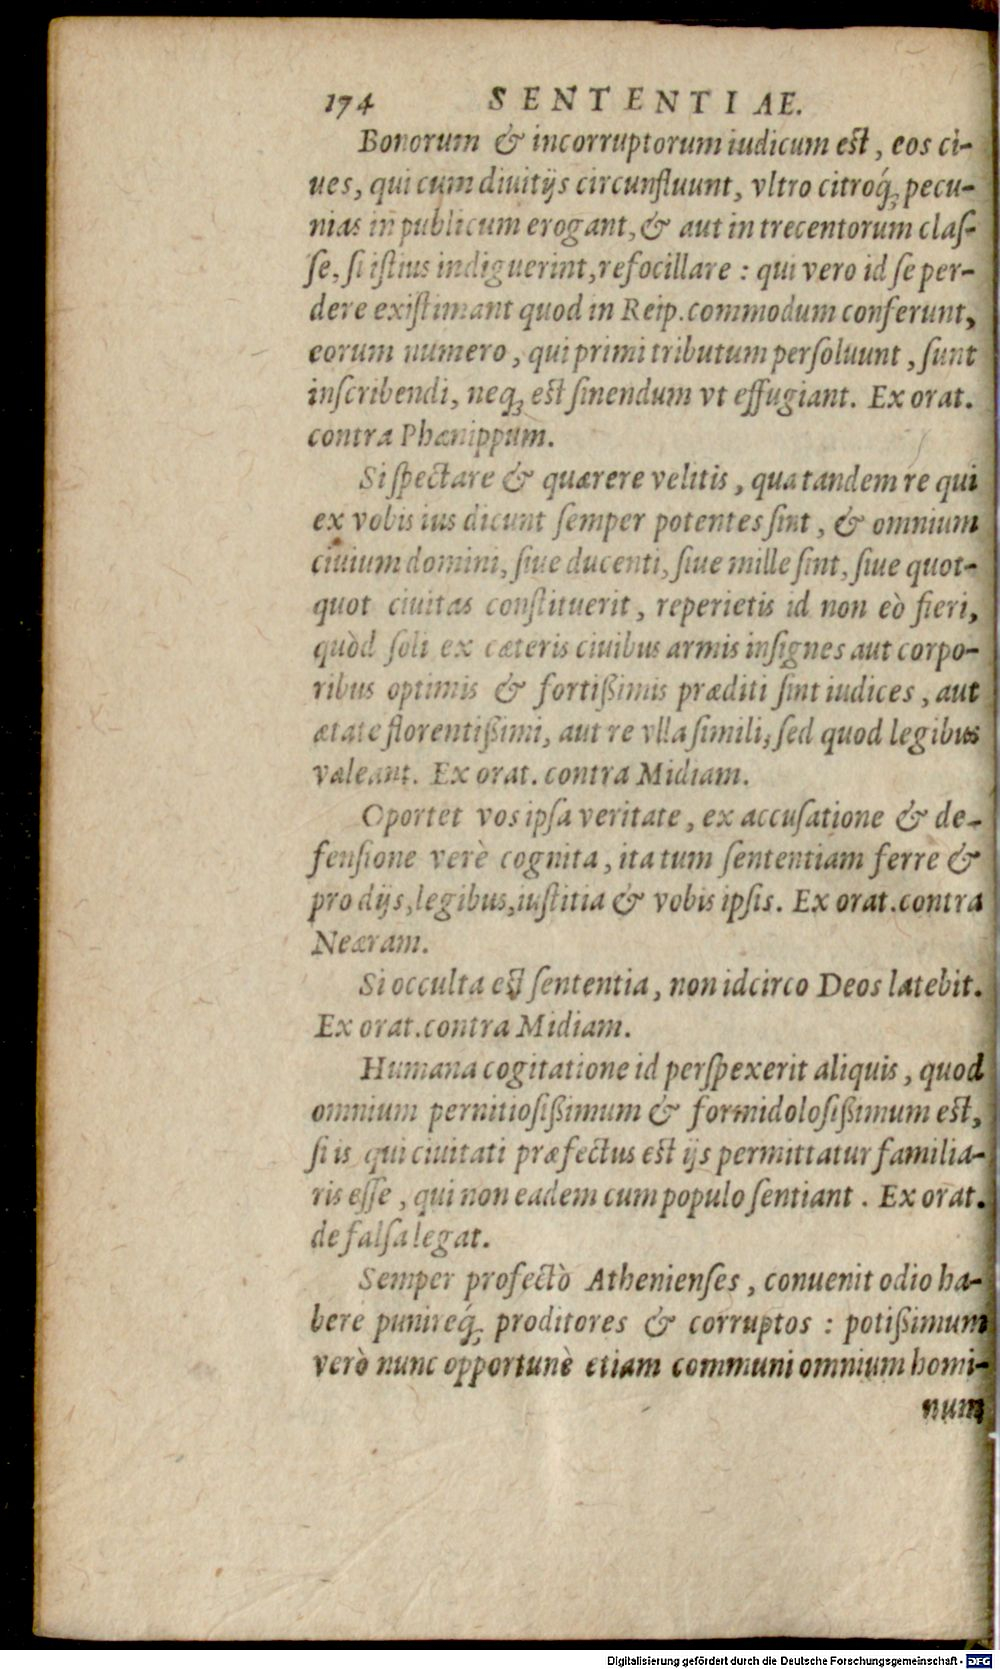 174 SENTENTIAE.
Bonorum & incorruptorum iudicum est, eos ci-
ues, qui cum diuitijs circunfluunt, vltro citroq́; pecu-
nias in publicum erogant, & aut in trecentorum claſ-
ſe, ſi iſtius indiguerint, refocillare : qui vero id ſe per-
dere exiſtimant quod in Reip. commodum conferunt,
eorum numero, qui primi tributum perſoluunt, ſunt
inſcribendi, neq; est ſinendum vt effugiant. Ex orat.
contra Phænippum.
Si ſpectare & quærere velitis, qua tandem re qui
ex vobis ius dicunt ſemper potentes ſint, & omnium
ciuium domini, ſiue ducenti, ſiue mille ſint, ſiue quot-
quot ciuitas conſtituerit, reperietis id non eò fieri,
quòd ſoli ex cæteris ciuibus armis inſignes aut corpo-
ribus optimis & fortißimis præditi ſint iudices, aut
ætate florentißimi, aut re vlla ſimili, ſed quod legibus
valeant. Ex orat. contra Midiam.
Oportet vos ipſa veritate, ex accuſatione & de-
fenſione verè cognita, ita tum ſententiam ferre &
pro dijs, legibus, iuſtitia & vobis ipſis. Ex orat. contra
Neæram.
Si occulta est ſententia, non idcirco Deos latebit.
Ex orat. contra Midiam.
Humana cogitatione id perſpexerit aliquis, quod
omnium pernitioſißimum & formidoloſißimum est,
ſi is qui ciuitati præfectus est ijs permittatur familia-
ris eſſe, qui non eadem cum populo ſentiant. Ex orat.
de falſa legat.
Semper profectò Athenienſes, conuenit odio ha-
bere punireq́; proditores & corruptos : potißimum
verò nunc opportunè etiam communi omnium homi-
num
Digitalisierung gefördert durch die Deutsche Forschungsgemeinschaft - DFG